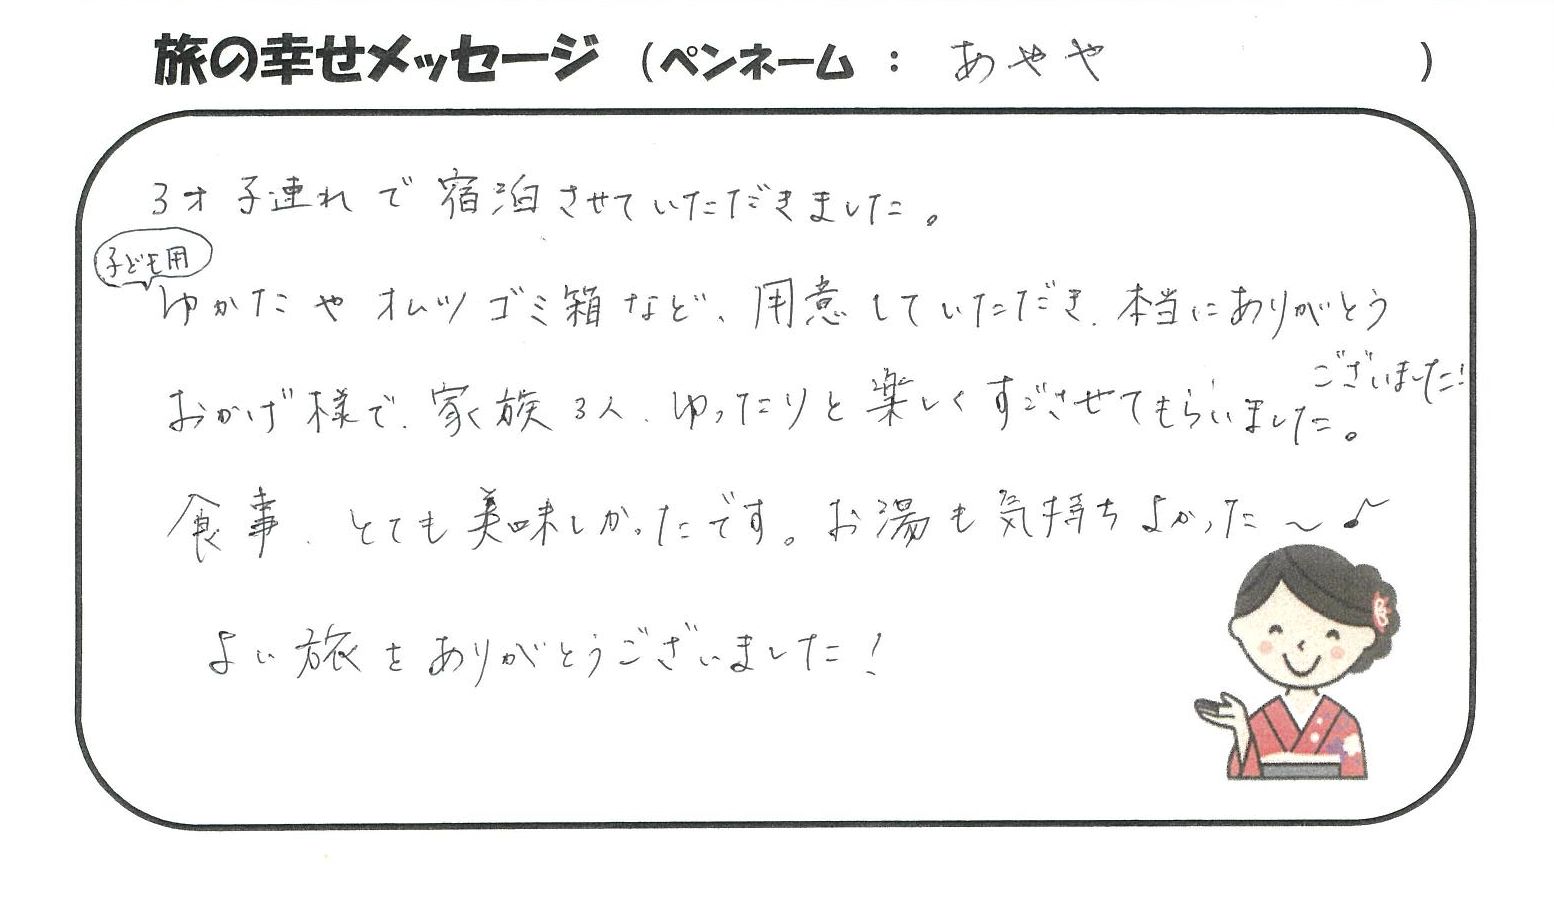 旅の幸せメッセージ (ペンネーム : あやや )
3才子連れで宿泊させていただきました。
子ども用
ゆかたやオムツゴミ箱など、用意していただき、本当にありがとう
ございました!
おかげ様で、家族3人、ゆったりと楽しくすごさせてもらいました。
食事、とても美味しかったです。お湯も気持ちよかった〜♪
よい旅をありがとうございました!